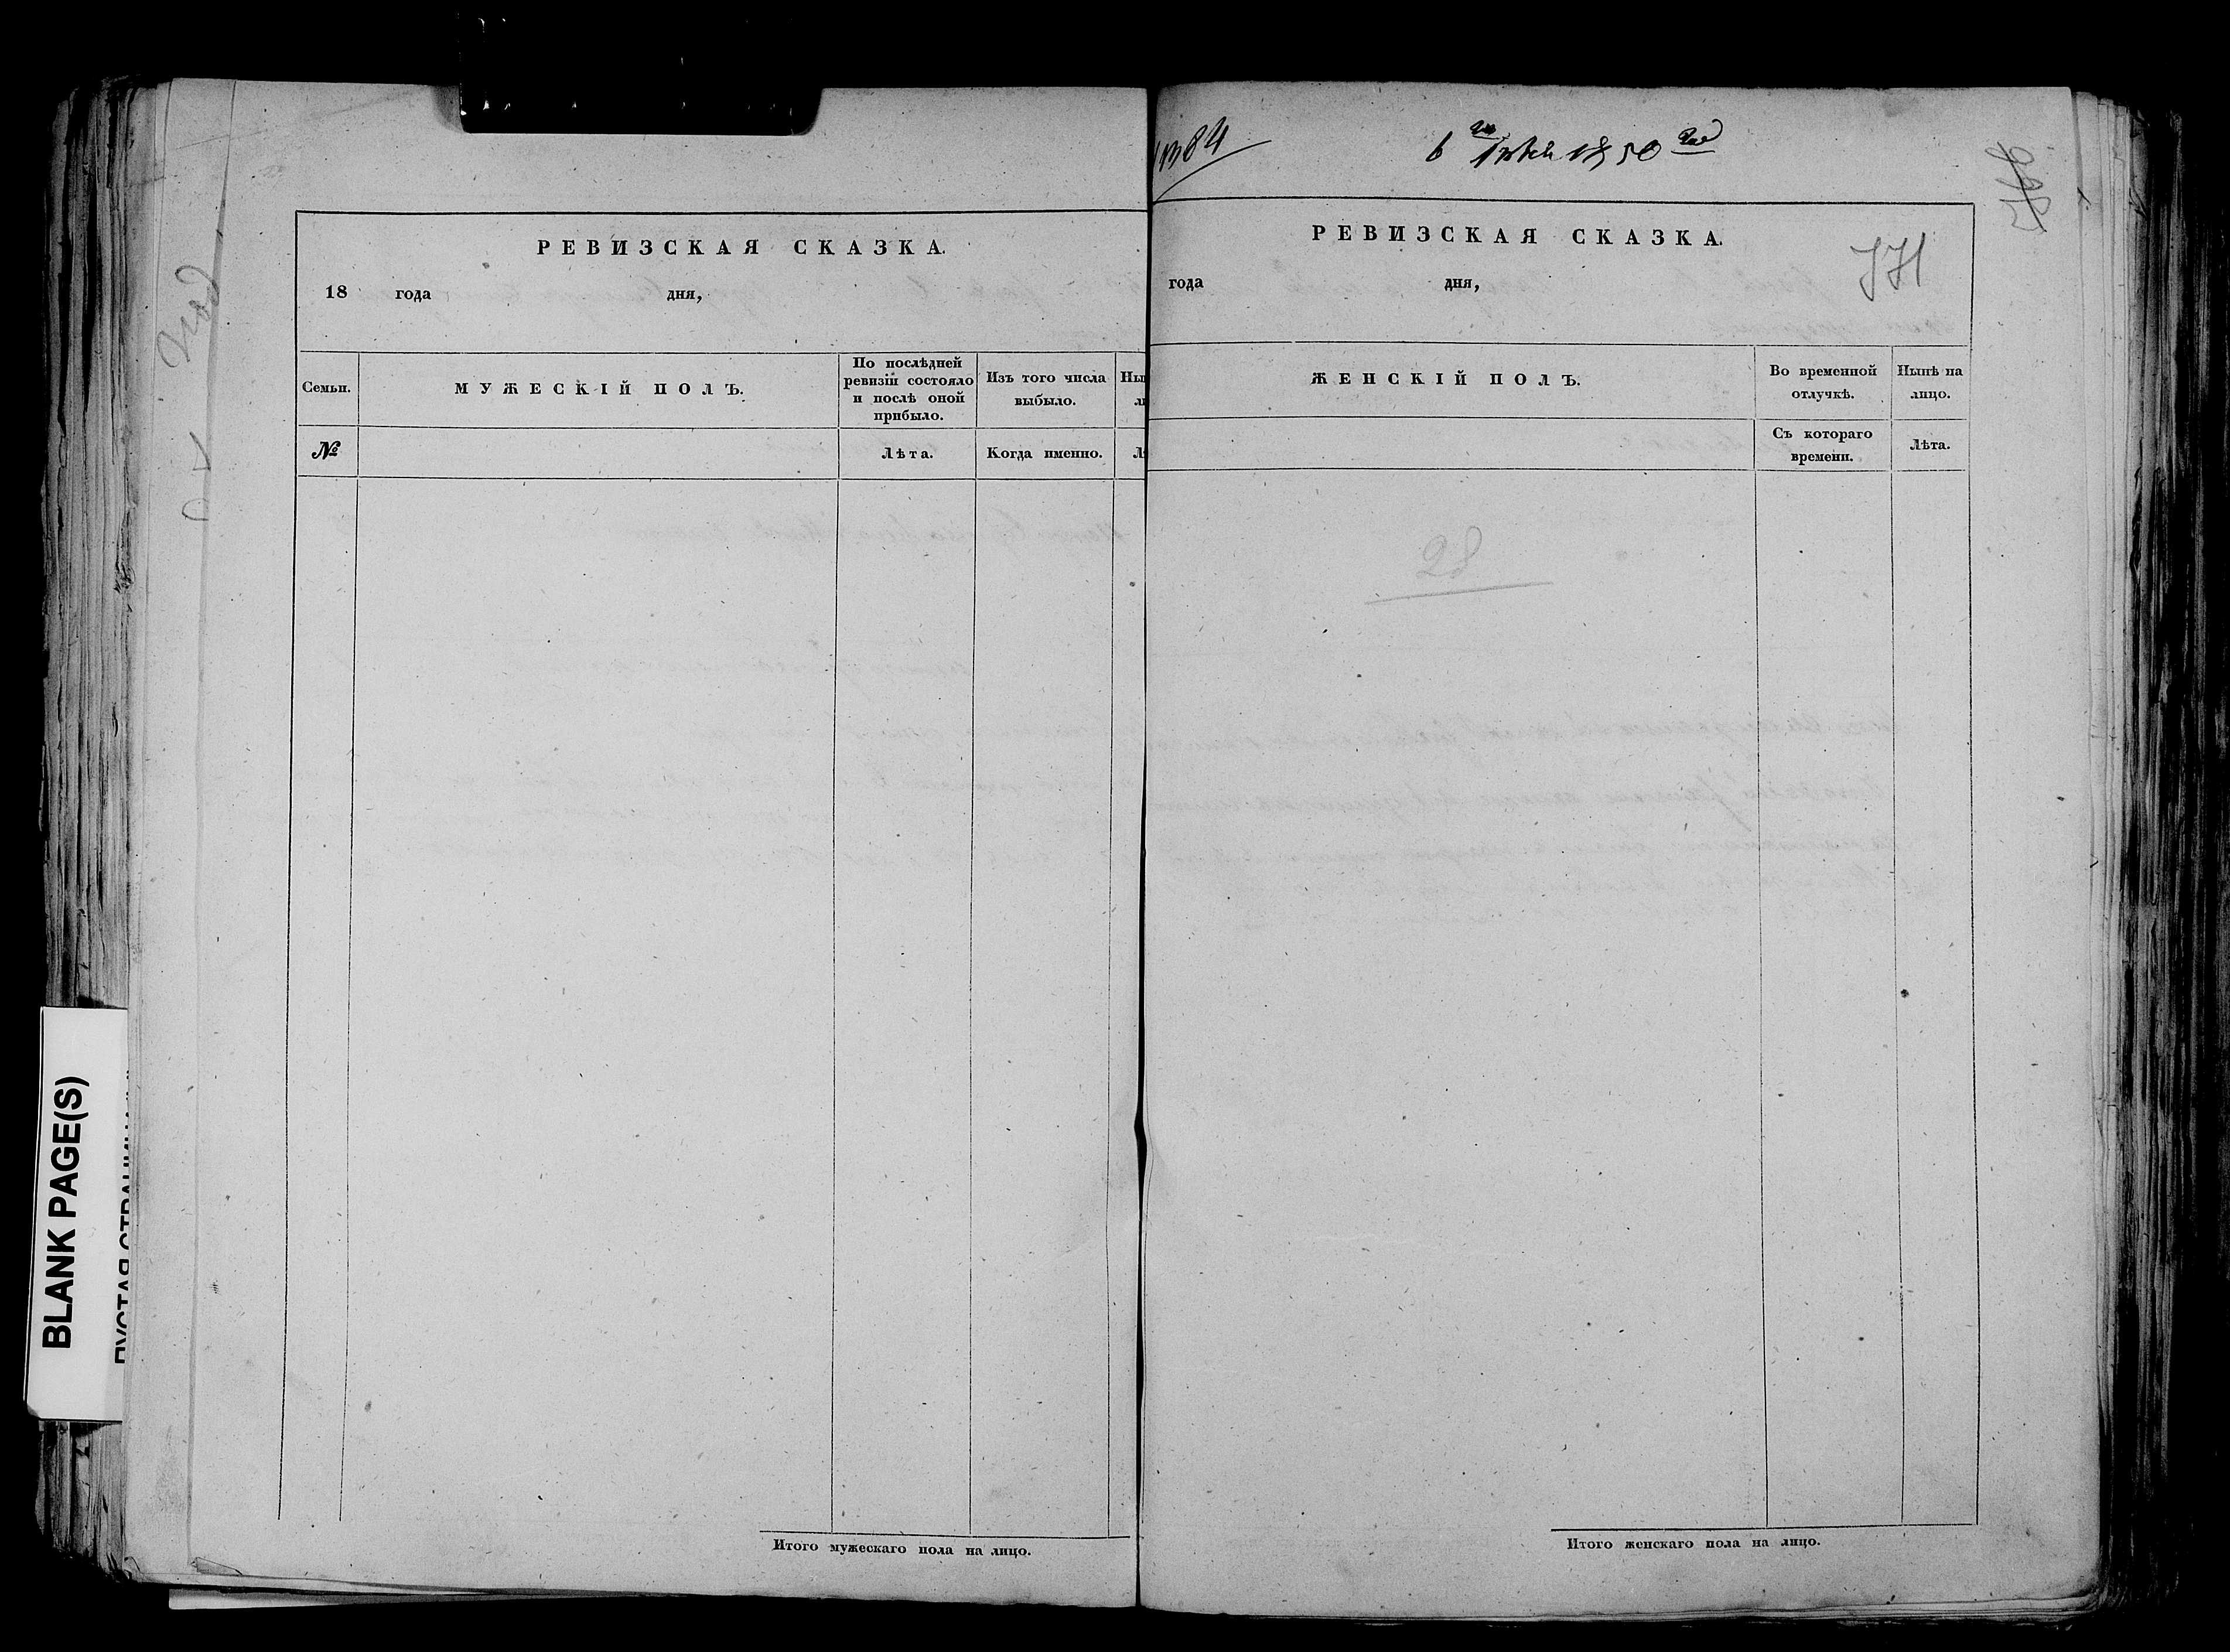 РЕВИЗСКАЯ СКАЗКА.
18 года дня,
Семьи.
МУЖЕСКІЙ ПОЛЪ.
По послѣдней
ревизіи состояло
и послѣ оной
прибыло.
Изъ того числа
выбыло.
№
Лѣта.
Когда именно.
Итого мужескаго пола на лицо.
1850
РЕВИЗСКАЯ СКАЗКА.
года дня,
771
ЖЕНСКІЙ ПОЛЪ.
Во временной
отлучкѣ.
Нынѣ на
лицо.
Съ котораго
времени.
Лѣта.
28
Итого женскаго пола на лицо.
BLANK PAGE(S)